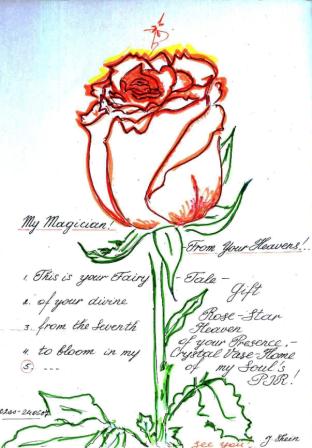 My Magician!
From Your Heavens!..
1. This is your Fairy - Tale - Gift
2. of your divine Rose-Star
3. from the Seventh Heaven of your Presence, -
4. to bloom in my Crystal Vase-Home
5. ... of my Soul's
see you